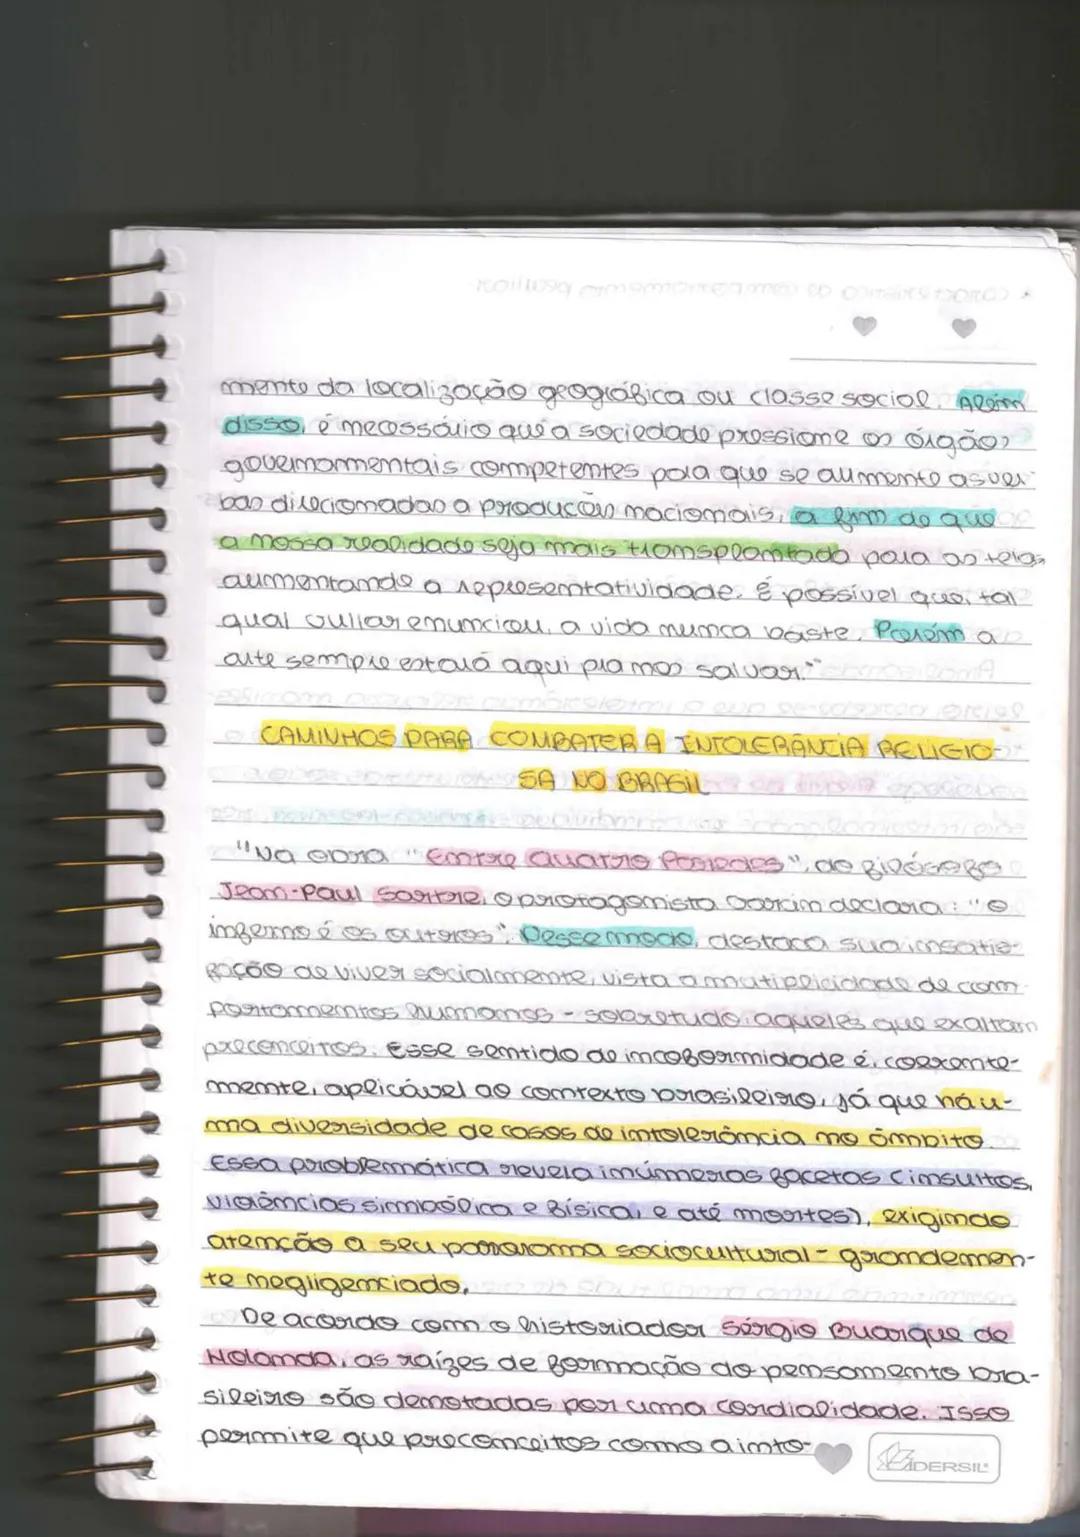 mento da localização geográfica ou classe social. Além
disso, é necessário que a sociedade pressione os órgãos
governamentais competentes para que se aumente as ver-
bas direcionadas a produções nacionais, a fim de que
a nossa realidade seja mais transplantada para as telas
aumentando a representatividade. É possível que, tal
qual Gullar enunciou, a vida nunca baste. Porém a
arte sempre estará aqui pra nos salvar."
CAMINHOS PARA COMBATER A INTOLERÂNCIA RELIGIO-
SA NO BRASIL
"Na obra "Entre Quatro Paredes", do filósofo
Jean-Paul Sartre, o protagonista assim declara: "O
inferno é os outros". Desse modo, destaca sua insatis-
fação de viver socialmente, vista a mutiplicidade de com-
portamentos humanos - sobretudo, aqueles que exaltam
preconceitos. Esse sentido de incoformidade é, coerente-
mente, aplicável ao contexto brasileiro, já que há u-
ma diversidade de casos de intolerância no âmbito.
Essa problemática revela inúmeras facetas (insultos,
violências simbólica e física, e até mortes), exigindo
atenção a seu panorama sociocultural - grandemen-
te negligenciado.
De acordo com o historiador Sérgio Buarque de
Holanda, as raízes de formação do pensamento bra-
sileiro são denotadas por uma cordialidade. Isso
permite que preconceitos como a into-
DERSIL